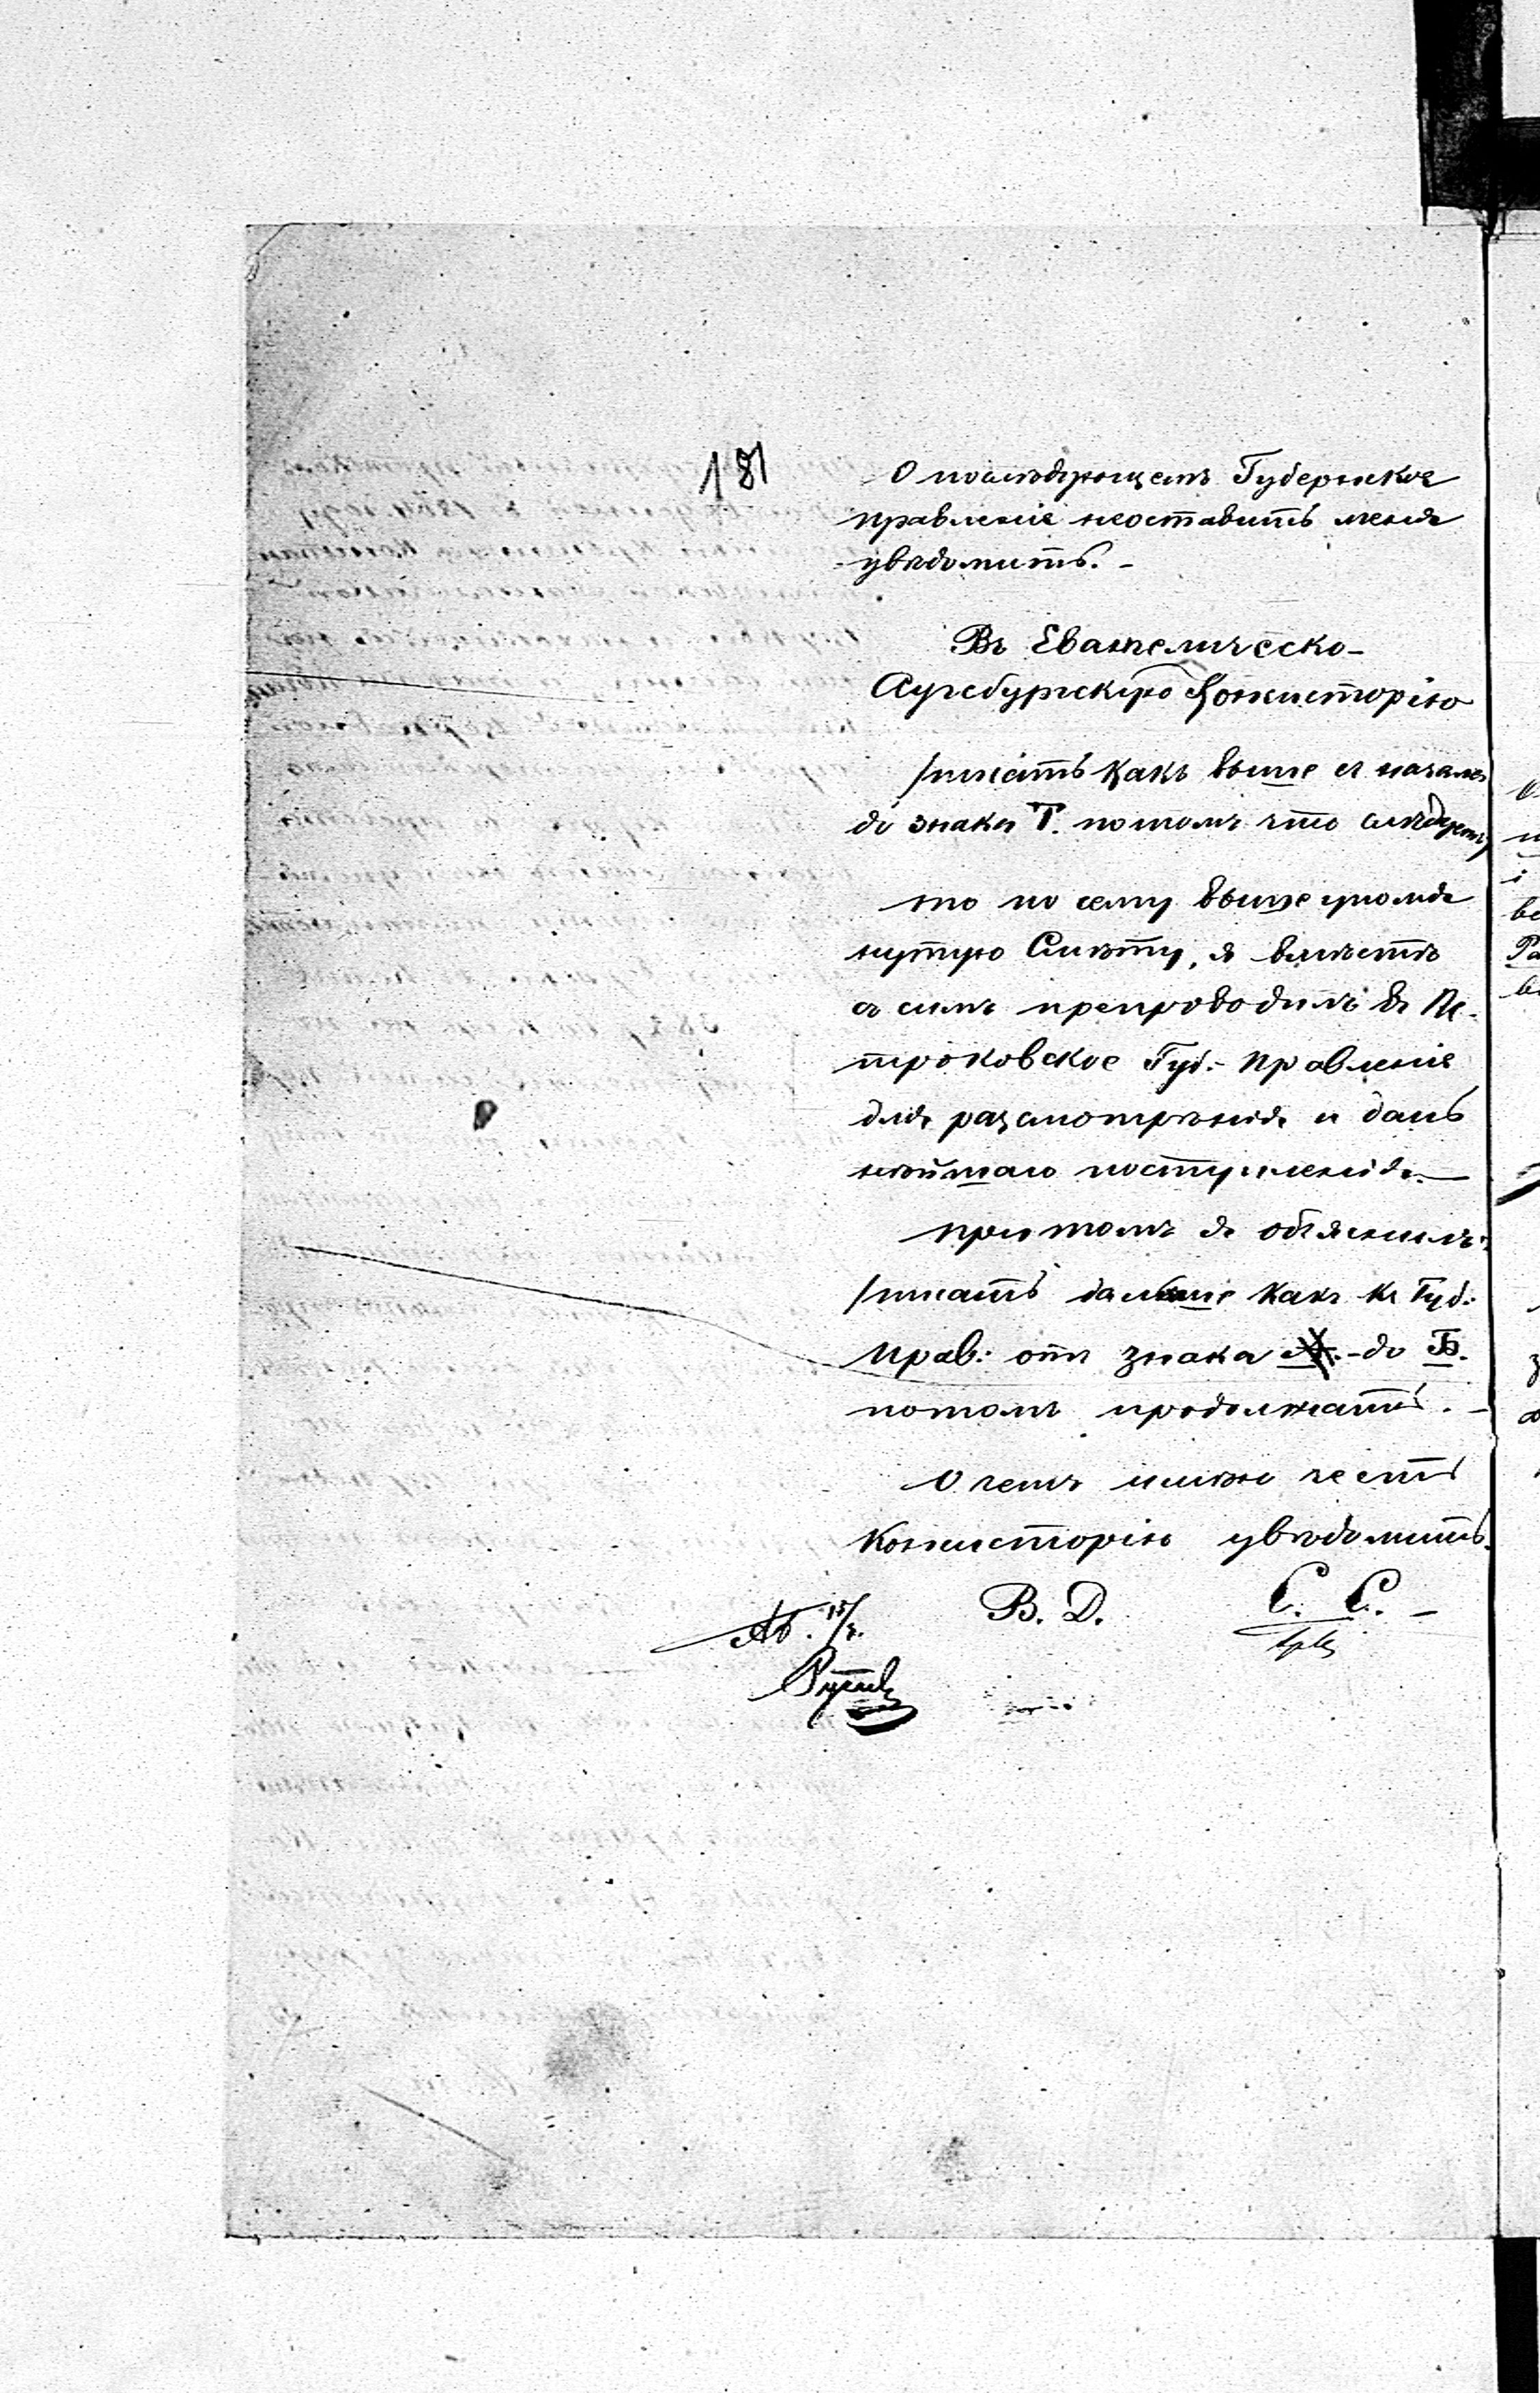 181
О послѣдующемъ Губернское
правленіе неоставитъ меня
увѣдомить. -
Въ Евангелическо-
Аугсбургскую Консисторію
/писать какъ выше съ начала
до знака Т. потомъ что слѣдуетъ/
то по сему вышеупомя
нутую Смѣту, я вмѣстѣ
съ симъ препроводилъ въ Пе-
троковское Губ:- правленіе
для разсмотрѣнія и даль
нѣйшаго поступленія. —
притомъ я объяснилъ:
/писать дальше какъ къ Губ:
Прав: отъ знака А. - до Б.
потомъ продолжать. -
О чемъ имѣю честь
Консисторію увѣдомить.
В. Д. С. С. -